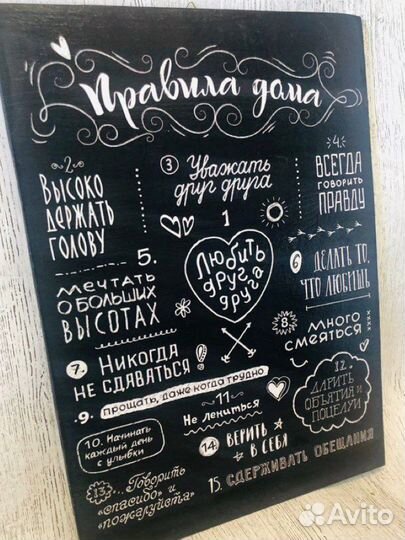 Правила дома
1
Любить
друг
друга
2
Высоко
держать
голову
3 Уважать
друг друга
4.
Всегда
говорить
правду
5.
Мечтать
о больших
высотах
6 Делать то,
что любишь
7. Никогда
не сдаваться!
8.
Много
смеяться
9. прощать, даже когда трудно
10. Начинать
каждый день
с улыбки
11
Не лениться
12.
Дарить
объятия и
поцелуи
13... Говорить
«спасибо» и
«пожалуйста»
14. Верить
в себя
15. Сдерживать обещания
Avito